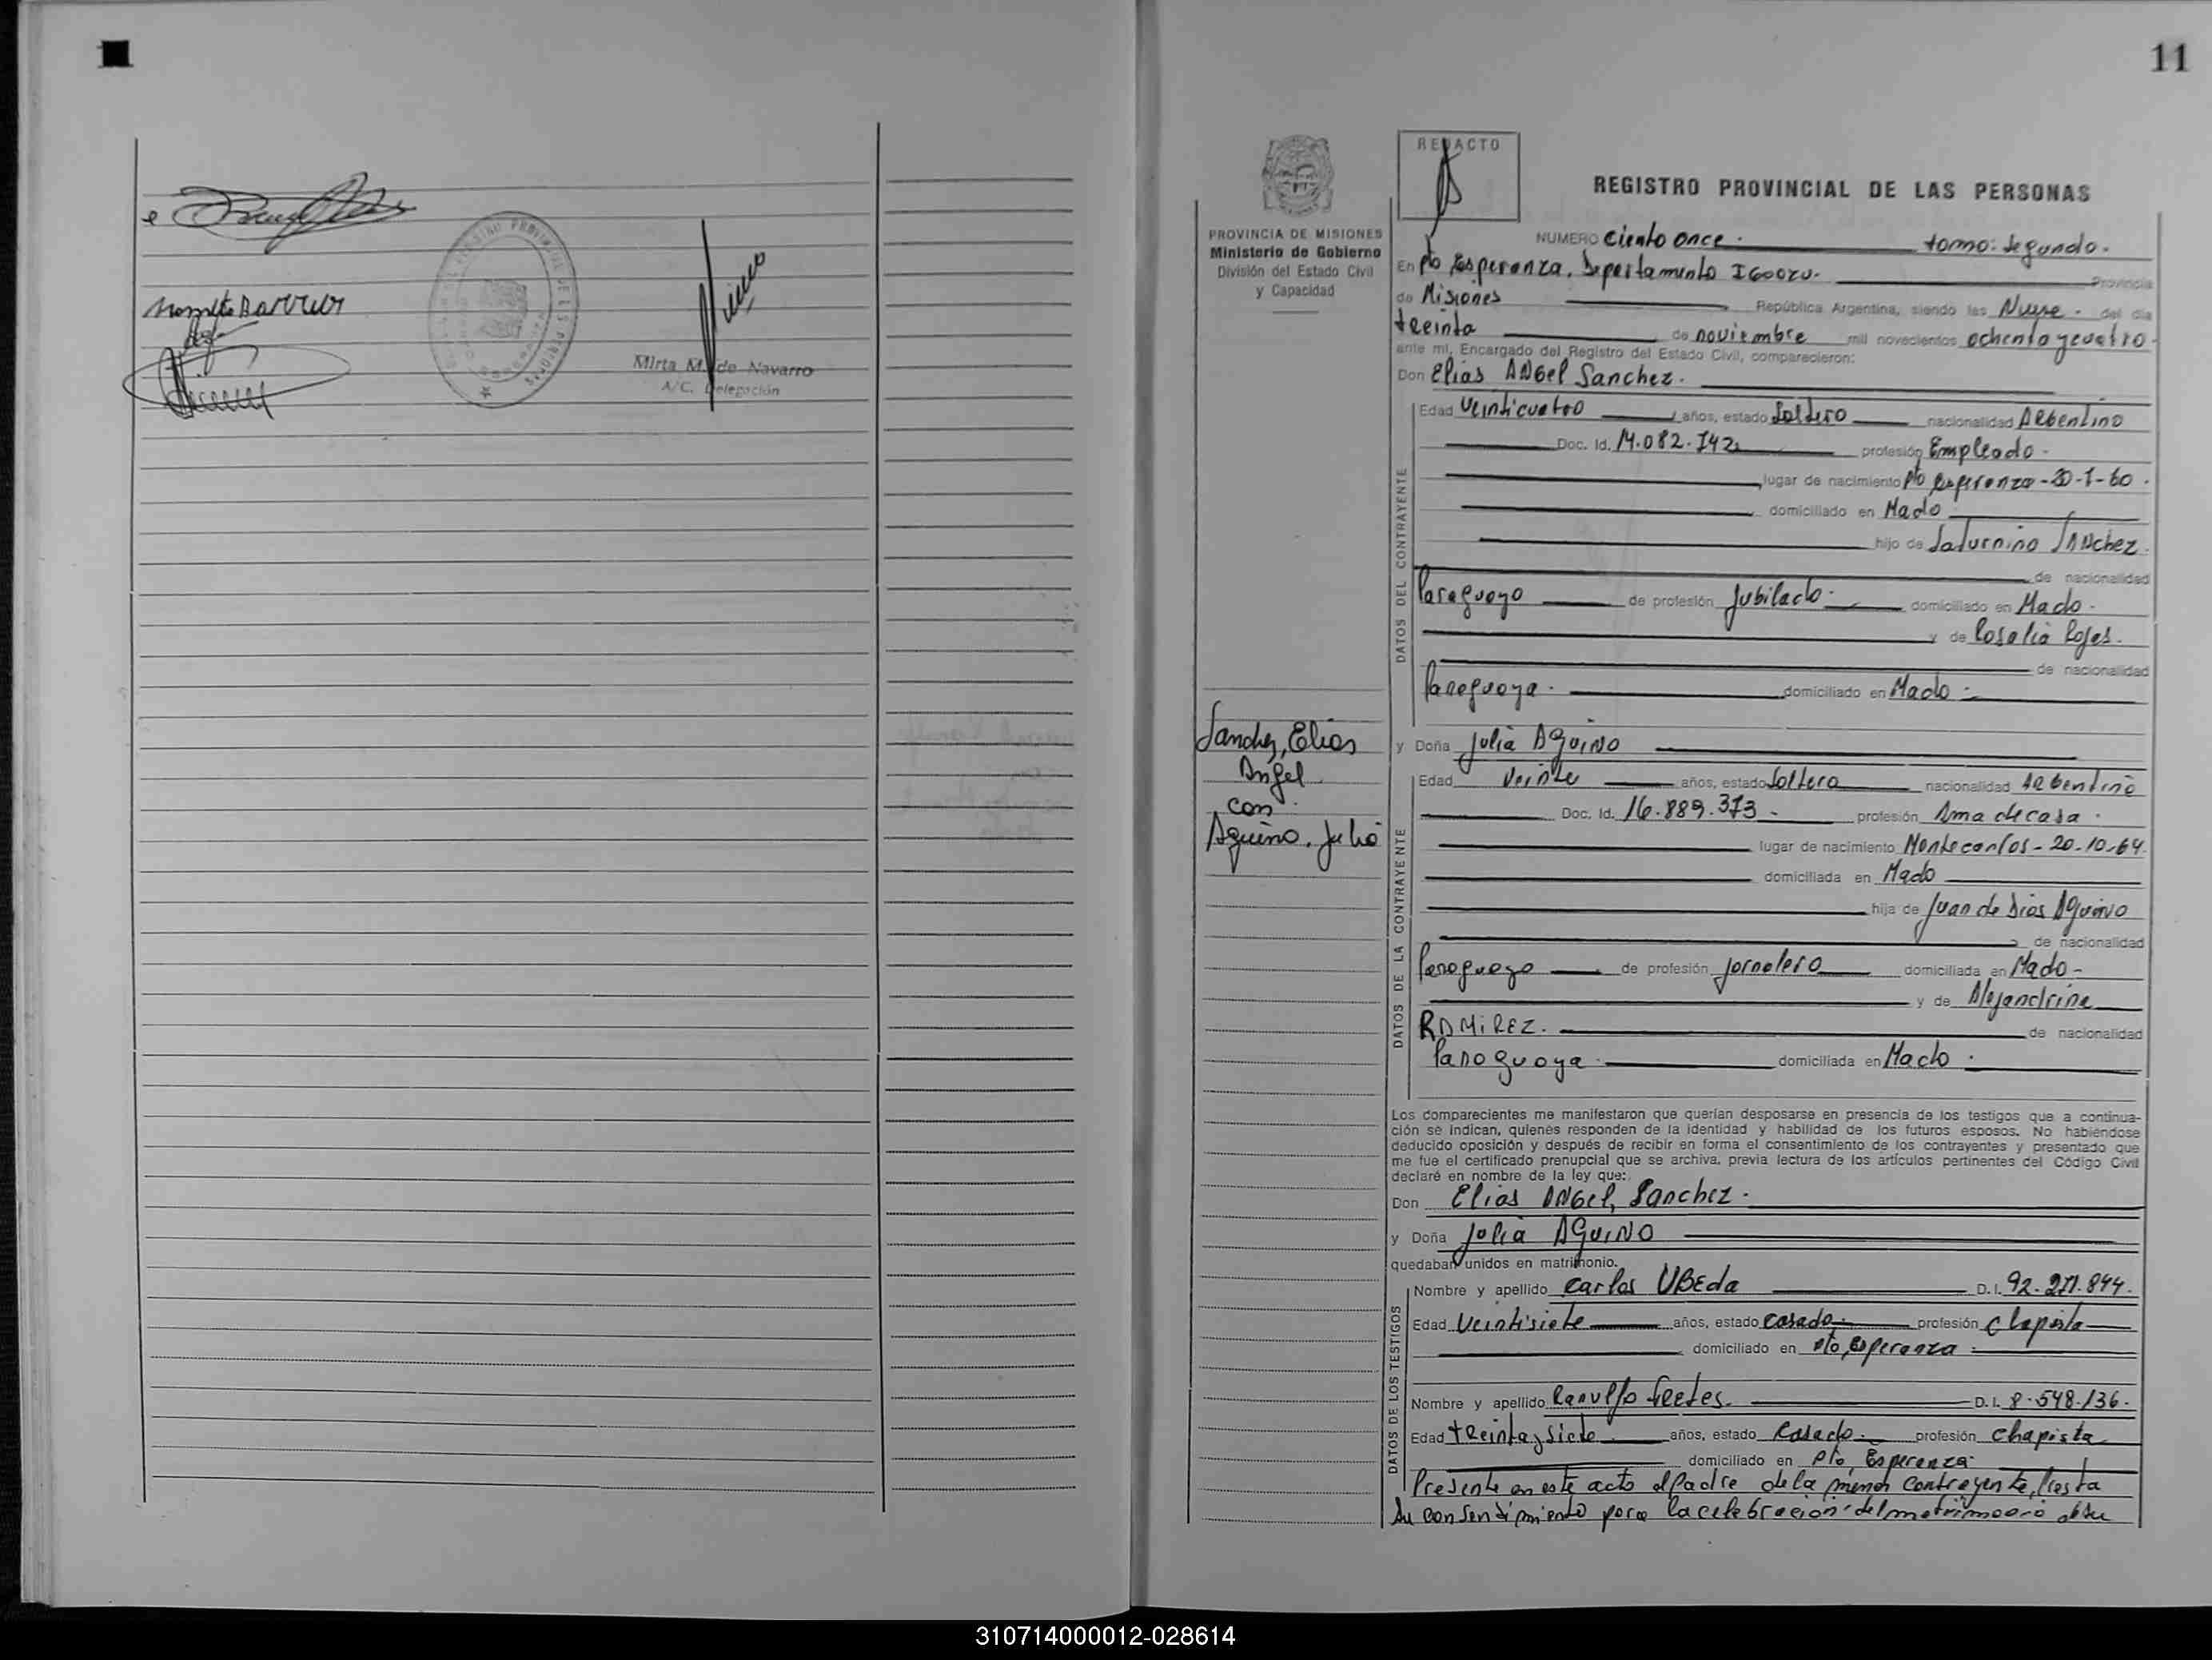 11
Mirta M. de Navarro
A/C. Delegación
PROVINCIA DE MISIONES
Ministerio de Gobierno
División del Estado Civil
y Capacidad
REDACTO
REGISTRO PROVINCIAL DE LAS PERSONAS
NUMERO Ciento once. tomo: segundo.
En Pto Esperanza. Departamento IGUAZU. Provincia
de Misiones República Argentina, siendo las Nueve. del día
treinta de noviembre mil novecientos ochenta y cuatro.
ante mi, Encargado del Registro del Estado Civil, comparecieron:
Don Elias ANGel Sanchez.
DATOS DEL CONTRAYENTE
Edad Veinticuatro años, estado Soltero nacionalidad ARGentino
Doc. Id. 14.082.742 profesión Empleado-
lugar de nacimiento Pto Esperanza-20-7-60.
domiciliado en Mado
hijo de Saturnino SANchez.
de nacionalidad
Paraguayo de profesión Jubilado. domiciliado en Mado-
y de Rosalia Rojas.
de nacionalidad
Paraguaya. domiciliado en Mado-
Sanchez, Elias
Angel
con
Aquino, Julia
y Doña Julia AQUINO
DATOS DE LA CONTRAYENTE
Edad Veinte años, estado Soltera nacionalidad ARGentina
Doc. Id. 16.889.373- profesión Ama de casa.
lugar de nacimiento Montecarlos-20-10-64.
domiciliada en Mado
hija de Juan de Dios AQuino
de nacionalidad
Paraguayo de profesión Jornalero domiciliada en Mado-
y de Alejandrina
RAMIREZ. de nacionalidad
Paraguaya. domiciliada en Mado.
Los comparecientes me manifestaron que querían desposarse en presencia de los testigos que a continua-
ción se indican, quienes responden de la identidad y habilidad de los futuros esposos. No habiéndose
deducido oposición y después de recibir en forma el consentimiento de los contrayentes y presentado que
me fue el certificado prenupcial que se archiva, previa lectura de los artículos pertinentes del Código Civil
declaré en nombre de la ley que:
Don Elias ANGel, Sanchez.
y Doña Julia AQUINO
quedaban unidos en matrimonio.
DATOS DE LOS TESTIGOS
Nombre y apellido Carlos UBEda D.I. 92.271.844.
Edad Veintisiete años, estado casado. profesión Chapista
domiciliado en Pto, Esperanza.
Nombre y apellido Ranulfo D.I. 8.548.136.
Edad treinta y siete años, estado Casado. profesión Chapista
domiciliado en Pto, Esperanza.
Presente en este acto el Padre de la menor contrayente, Presta
su consentimiento para la celebracion del matrimonio de su
310714000012-028614